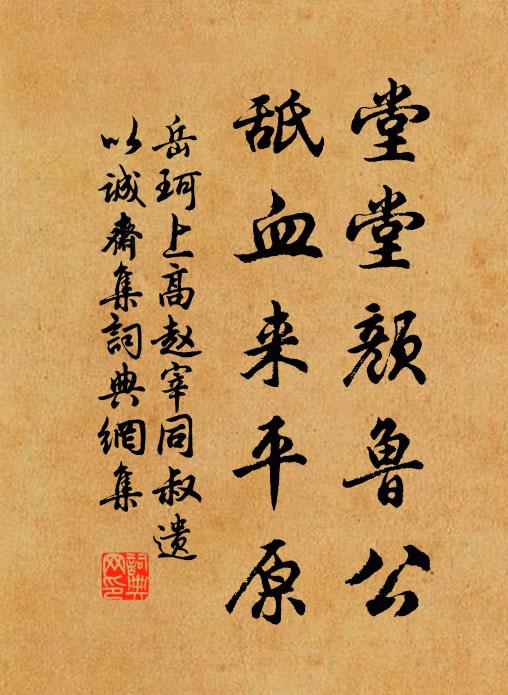 堂堂颜鲁公
舐血来平原
岳珂上高赵宰同叔遗
以诚斋集詞典網集
詞典
网印